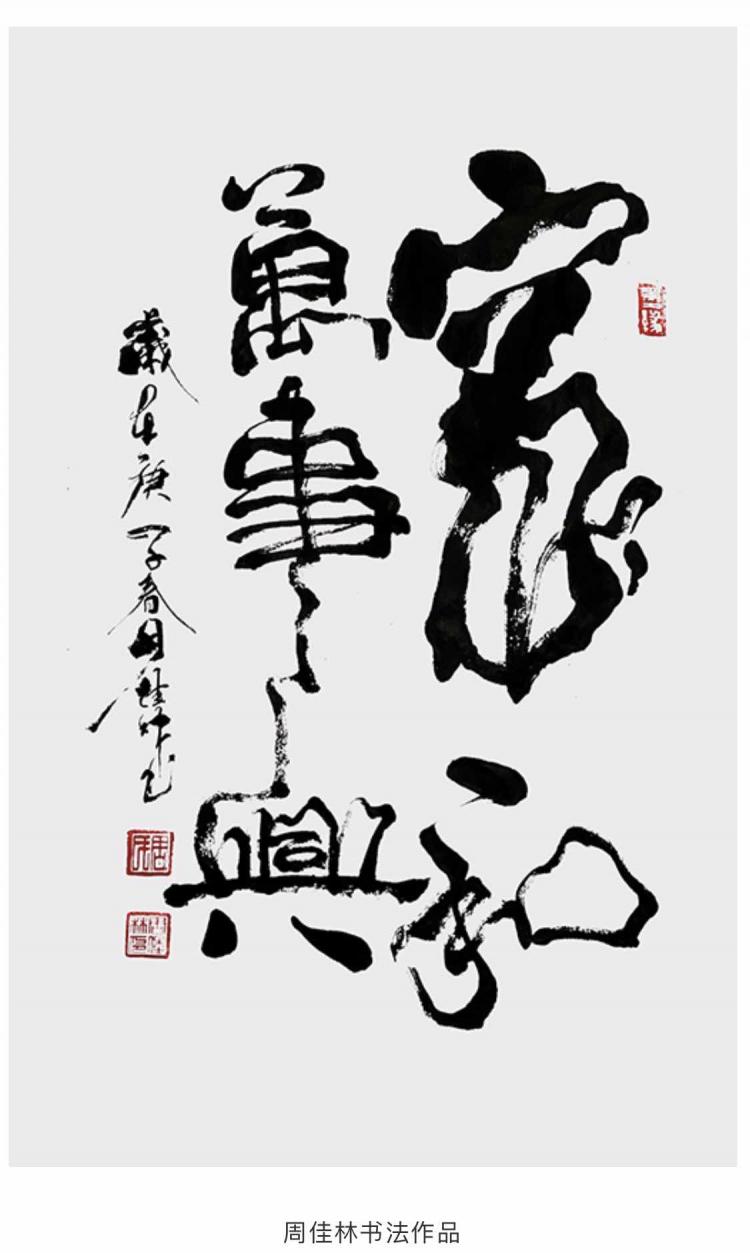 家和
萬事興
歲在庚子春月佳林書
周佳林书法作品